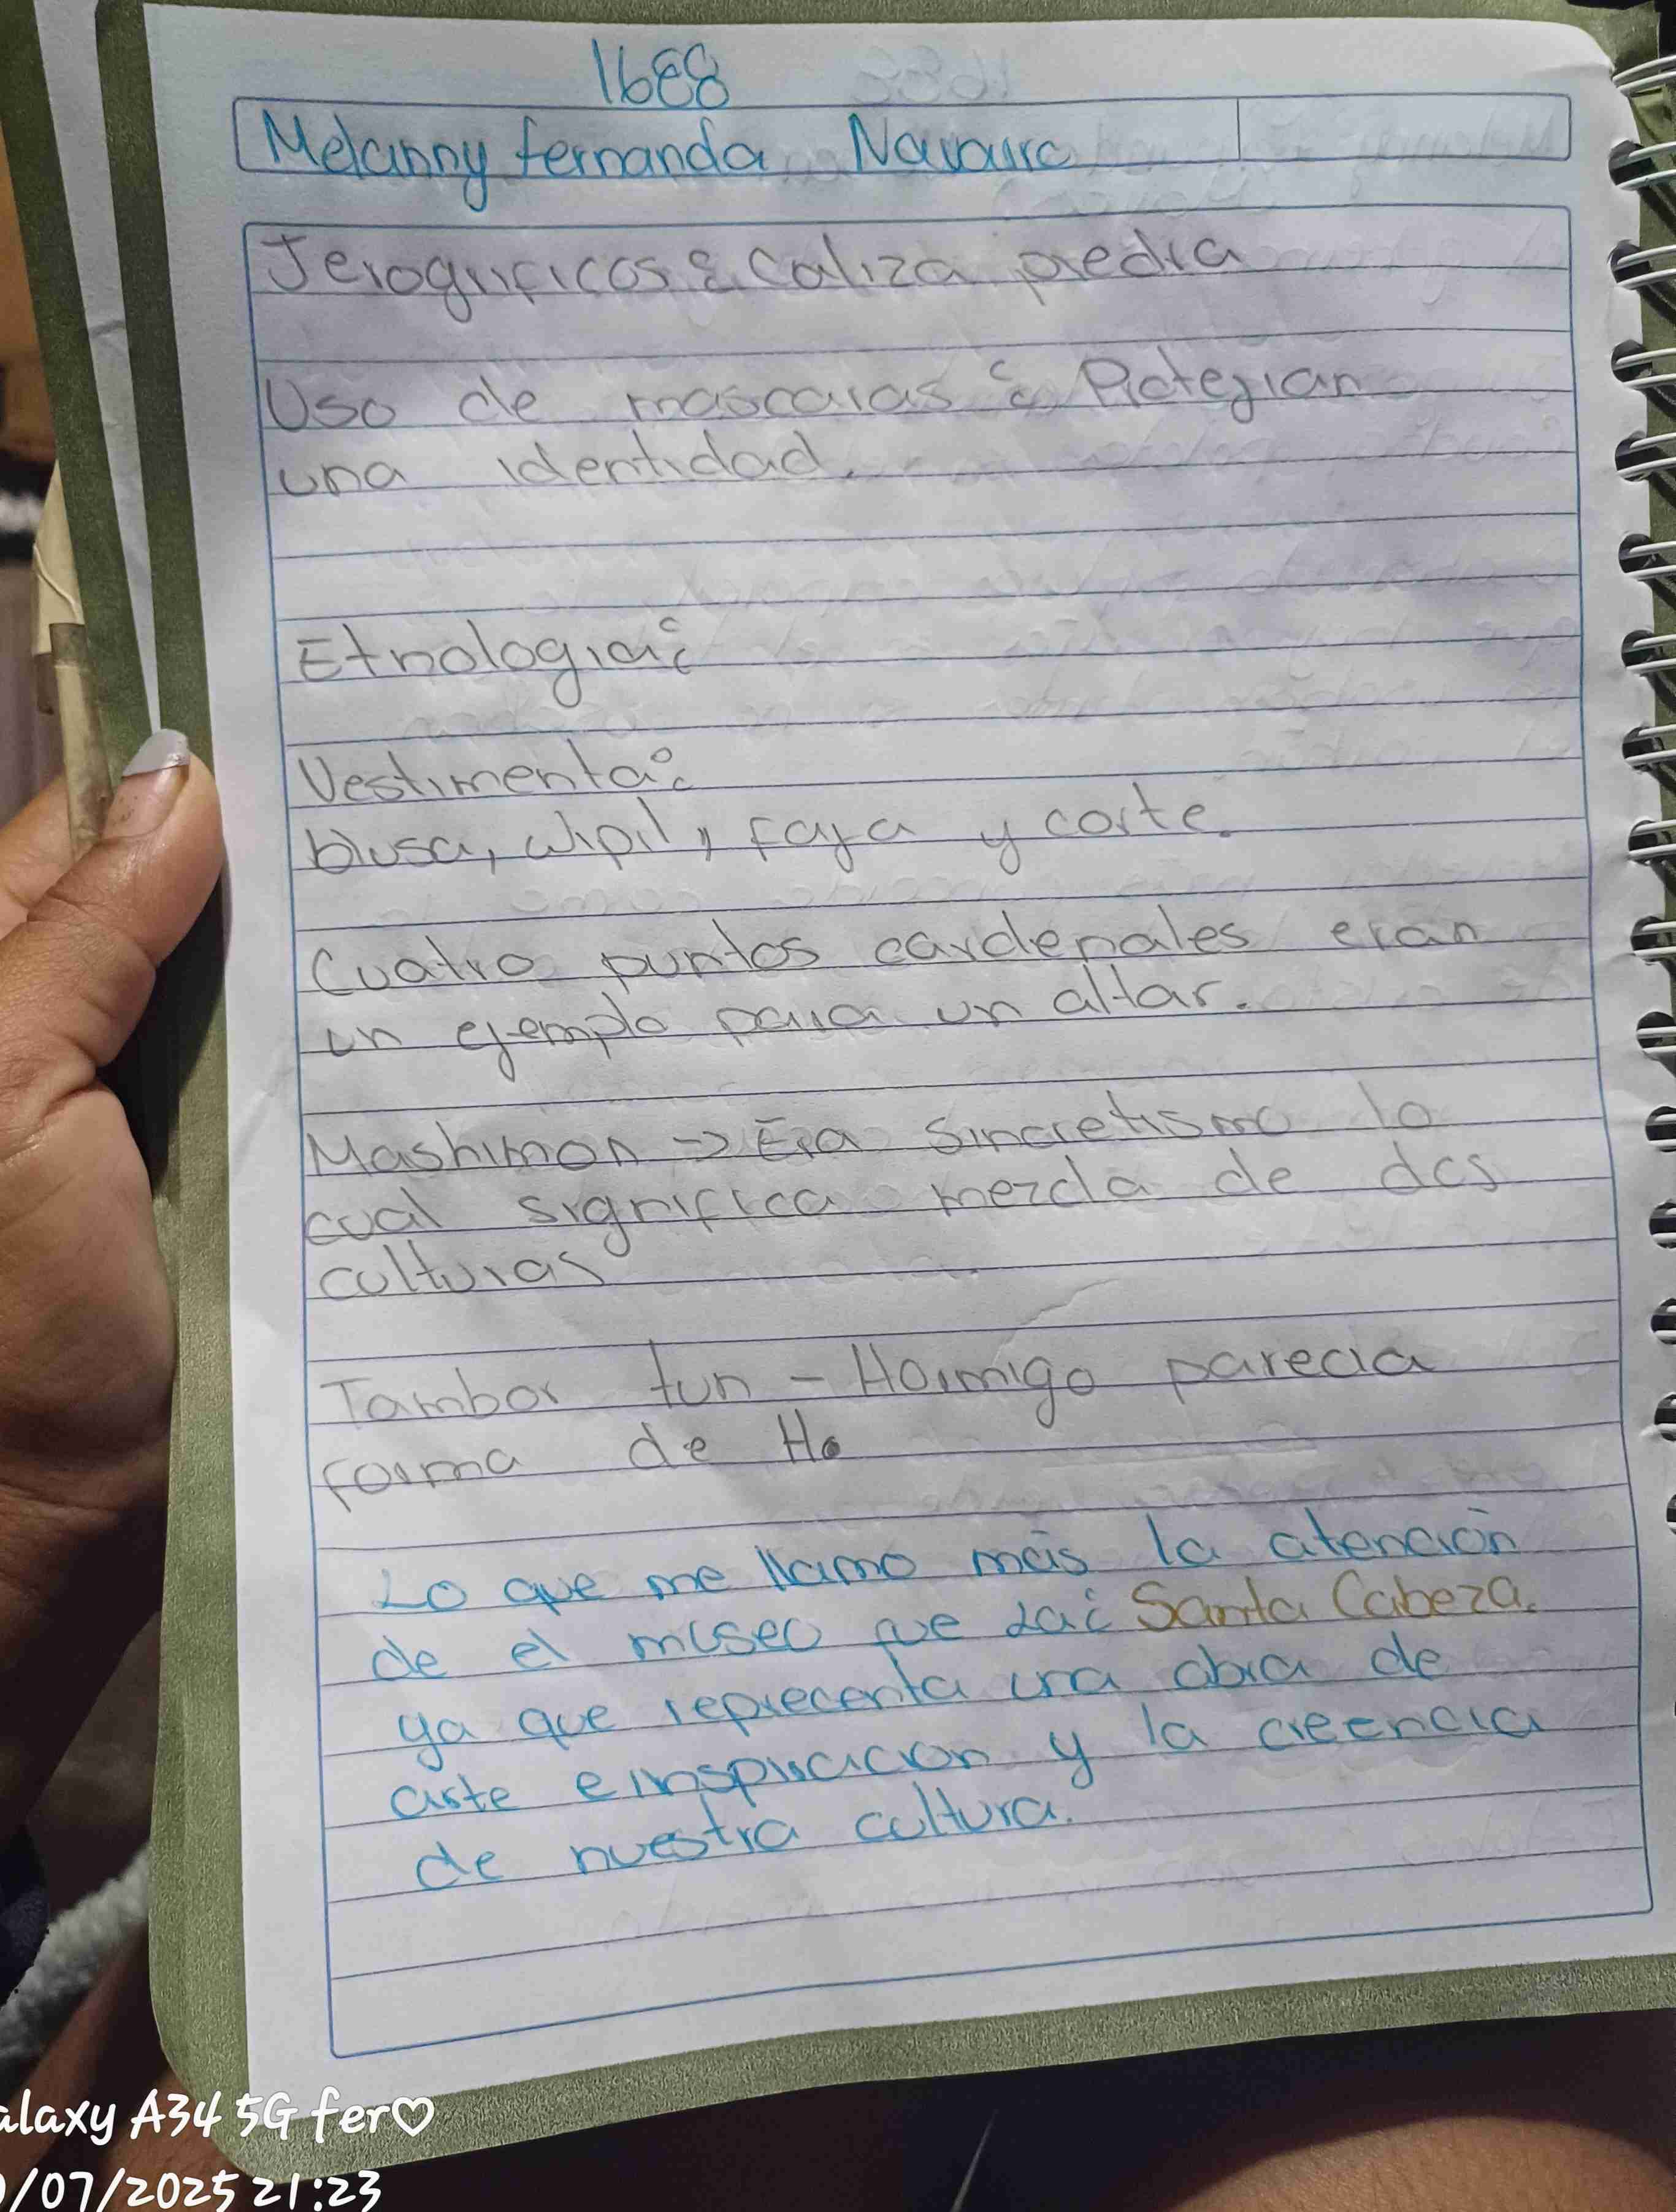 1688
Melanny fernanda Navarro
Jerogrificos: Caliza piedra
Uso de mascaras: Protegian
una identidad.
Etnologia:
Vestimenta:
blusa, wipil, faya y corte.
Cuatro puntos cardenales eran
un ejemplo para un altar.
Mashimon -> Era Sincretismo lo
cual significa mezcla de dos
culturas
Tambor tun - Hormigo parecia
forma de H.
Lo que me llamo más la atención
de el museo fue La: Santa Cabeza.
ya que reprecenta una obra de
arte e inspiracion y la creencia
de nuestra cultura.
alaxy A34 5G fer♡
/07/2025 21:23